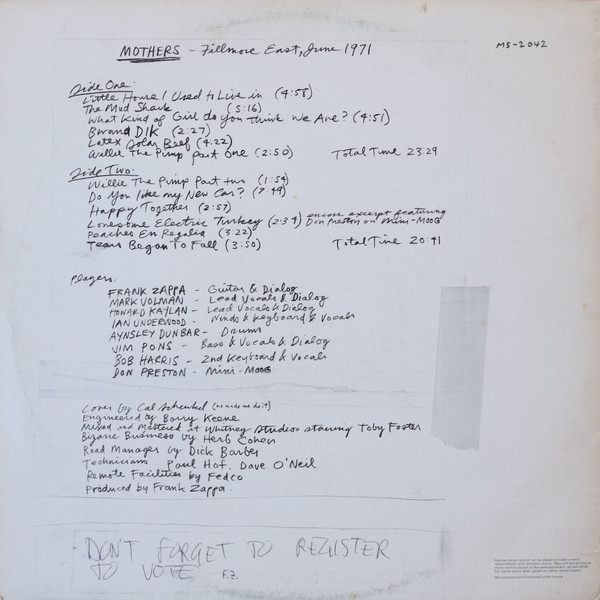 MOTHERS - Fillmore East, June 1971
MS-2042
Side One:
Little House I Used to Live in (4:58)
The Mud Shark (5:16)
What kind of Girl do you think we Are? (4:51)
Bwana Dik (2:27)
Latex Solar Beef (4:22)
Willie The Pimp Part One (2:50) Total Time 23:29
Side Two:
Willie The Pimp Part two (1:54)
Do You like my New Car? (7:49)
Happy Together (2:57)
Lonesome Electric Turkey (2:39) encore excerpt featuring Don Preston on Mini-MOOG
Peaches En Regalia (3:22)
Tears Began To Fall (3:50) Total Time 20:41
Players:
FRANK ZAPPA - Guitar & Dialog
MARK VOLMAN - Lead Vocals & Dialog
HOWARD KAYLAN - Lead Vocals & Dialog
IAN UNDERWOOD - Winds & Keyboard & Vocals
AYNSLEY DUNBAR - Drums
JIM PONS - Bass & Vocals & Dialog
BOB HARRIS - 2nd Keyboard & Vocals
DON PRESTON - Mini-MOOG
Cover by Cal Schenkel (he made me do it)
Engineered by Barry Keene
Mixed and Mastered at Whitney Studios starring Toby Foster
Bizarre Business by Herb Cohen
Road Manager by Dick Barber
Technicians Paul Hof, Dave O'Neil
Remote Facilities by Fedco
Produced by Frank Zappa.
DON'T FORGET TO REGISTER
TO VOTE F.Z.